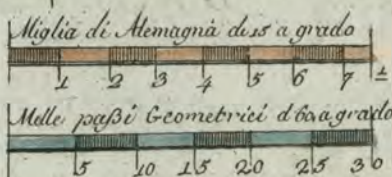 Miglia di Alemagna di 15 a grado
1 2 3 4 5 6 7 1/2
Mille paßi Geometrici d 60 a grado
5 10 15 20 25 30